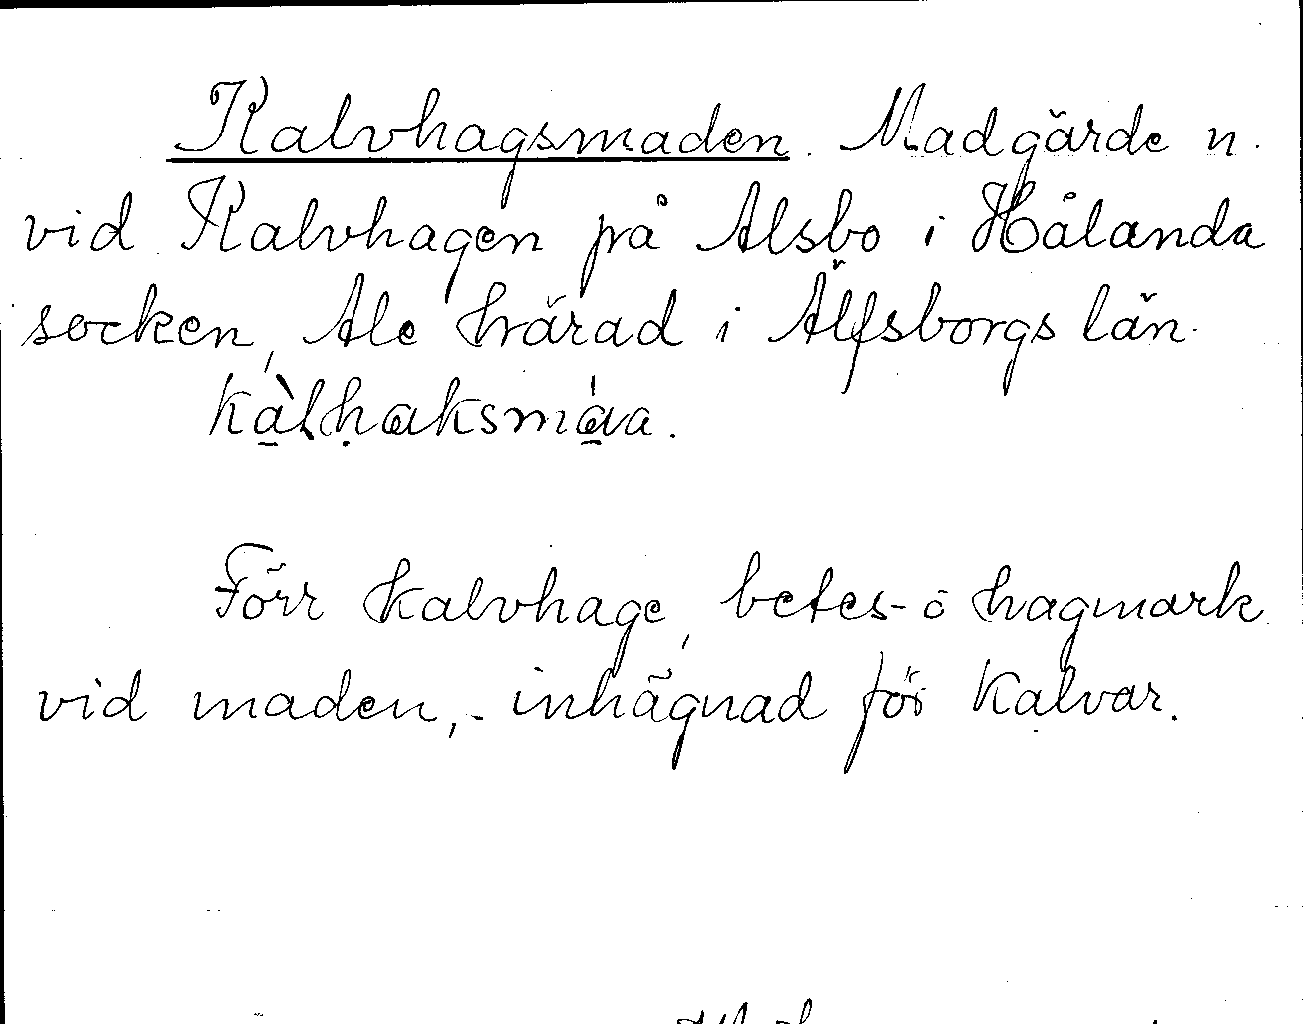 Kalvhagsmaden. Madgärde n.
vid Kalvhagen på Alsbo i Hålanda
socken, Ale härad i Älfsborgs län.
kàlhaksmáva.
Förr kalvhage, betes- o hagmark
vid maden, - inhägnad för kalvar.